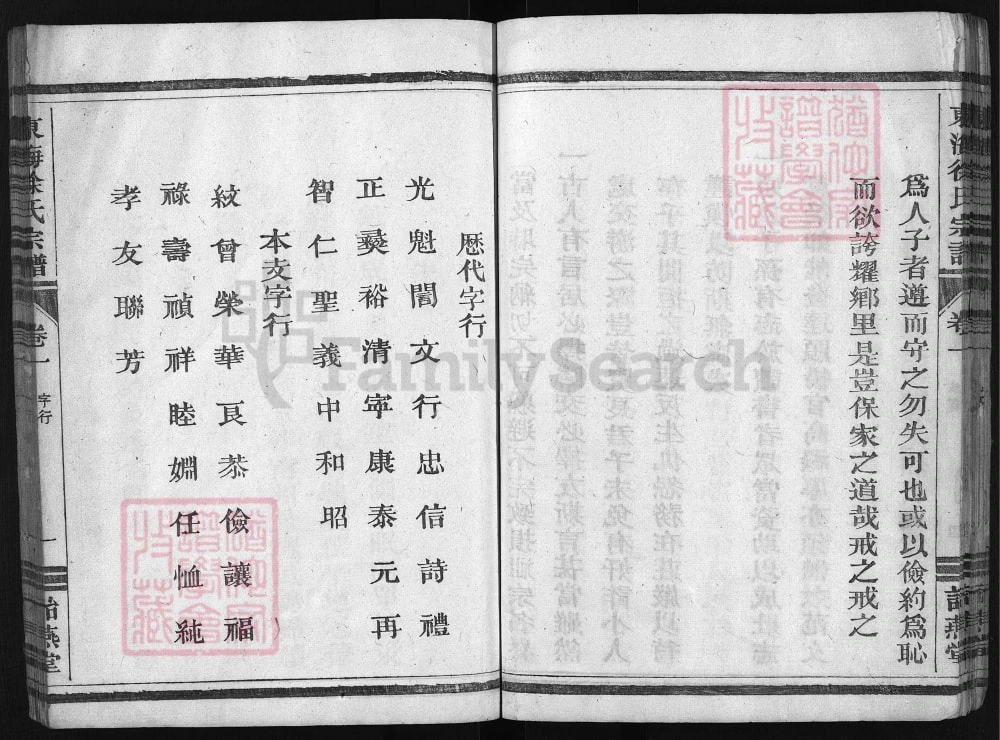 東海徐氏宗譜
卷一
詒燕堂
爲人子者遵而守之勿失可也或以儉約爲恥
而欲誇耀鄉里是豈保家之道哉戒之戒之
歷代字行
光魁誾文行忠信詩禮
正彜裕清寜康泰元再
智仁聖義中和昭
本支字行
紋曾榮華良恭儉讓福
祿壽禎祥睦婣任恤純
孝友聯芳
東海徐氏宗譜
卷一
字行
一
詒燕堂
譜學會
收藏
譜學會
收藏
FamilySearch